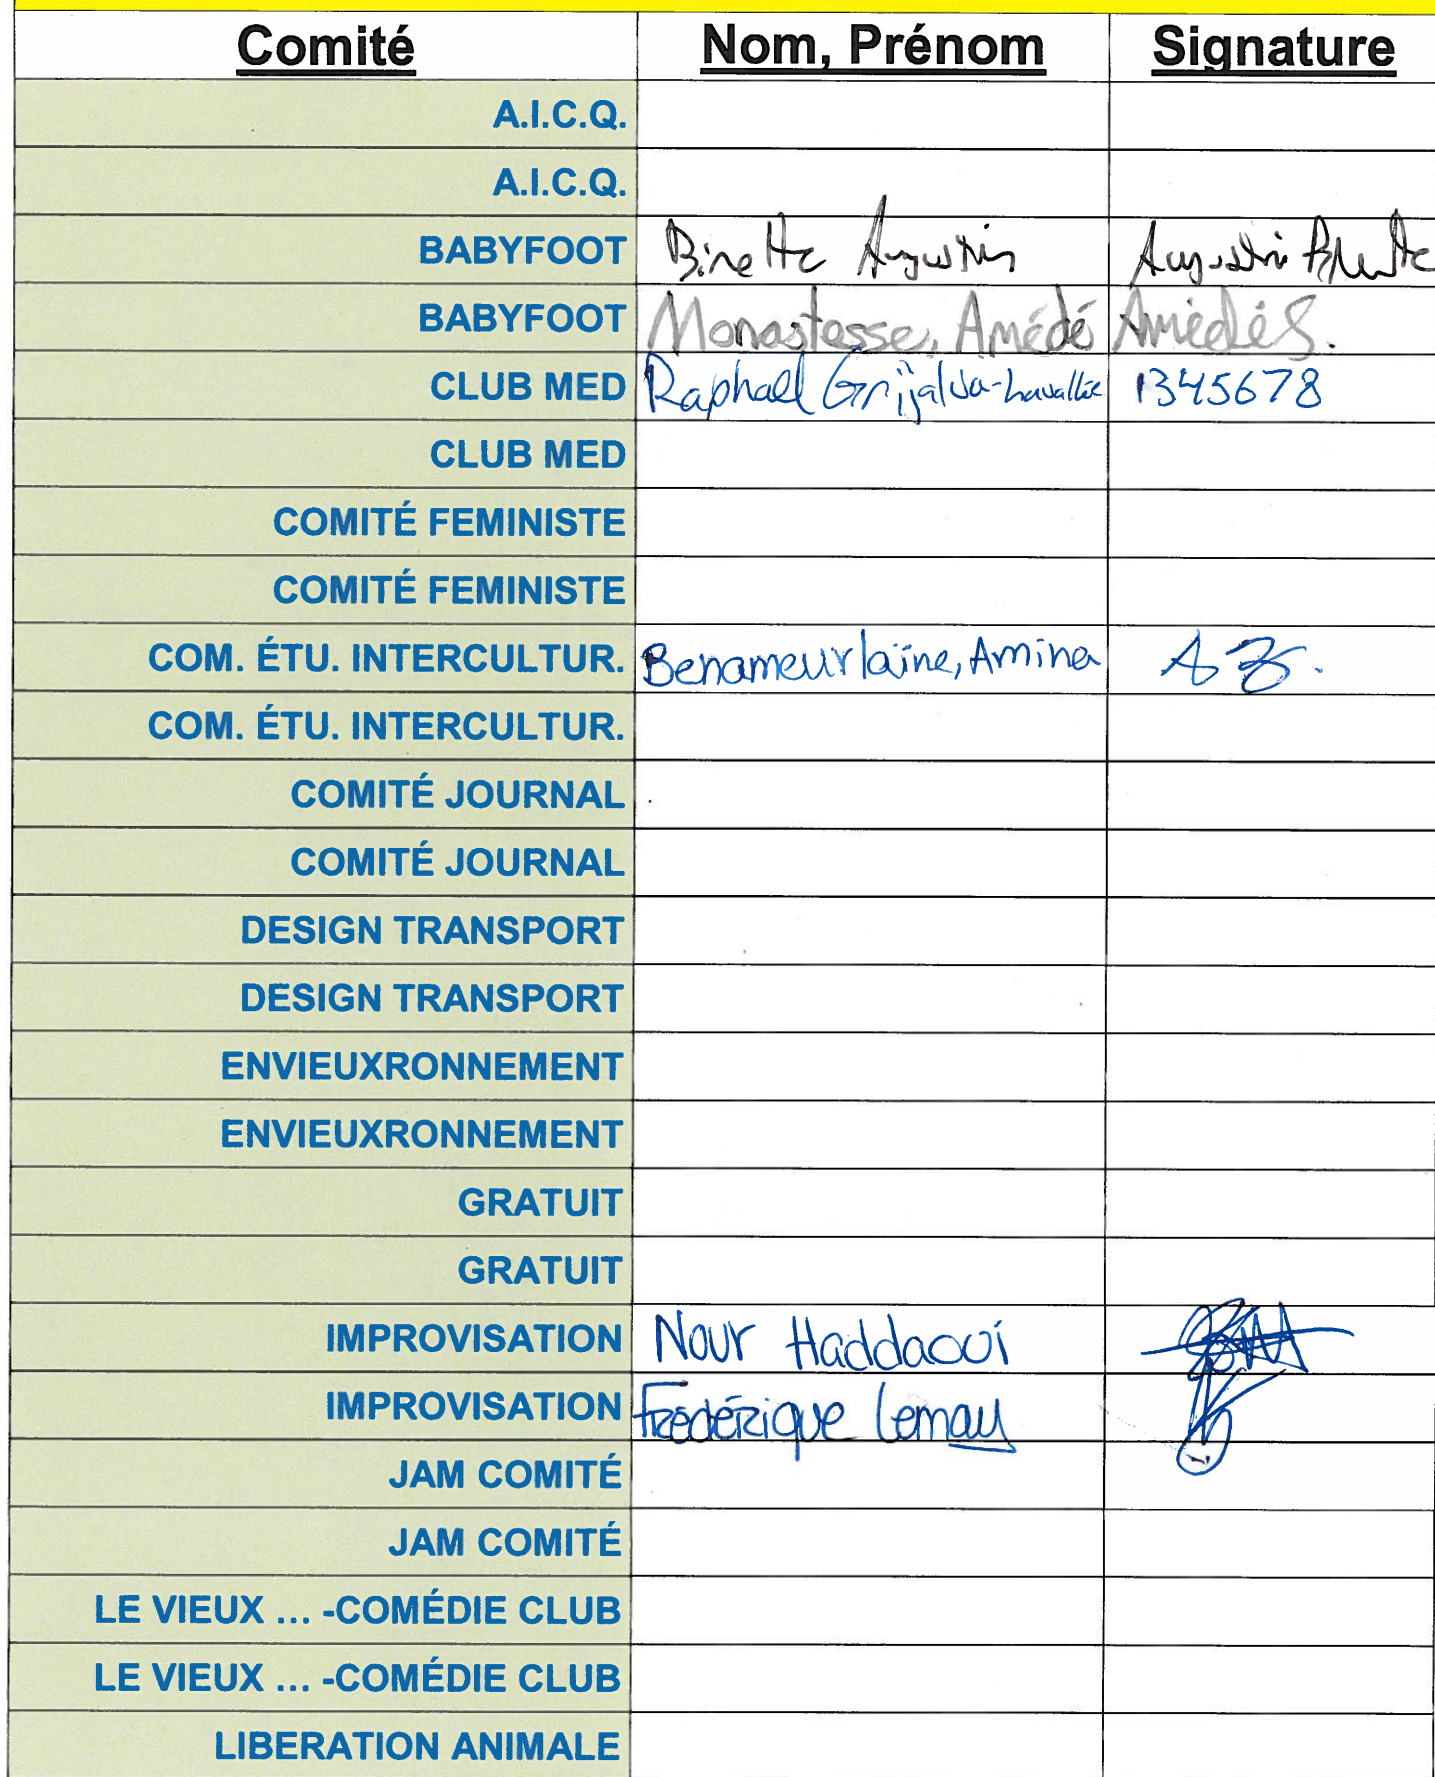 Comité Nom, Prénom Signature
A.I.C.Q.
A.I.C.Q.
BABYFOOT Binette Augustin Augustin Binette
BABYFOOT Monastesse, Amédé Amédé S.
CLUB MED Raphael Grijalva-Lavallée 1345678
CLUB MED
COMITÉ FEMINISTE
COMITÉ FEMINISTE
COM. ÉTU. INTERCULTUR. Benameurlaine, Amina AB.
COM. ÉTU. INTERCULTUR.
COMITÉ JOURNAL
COMITÉ JOURNAL
DESIGN TRANSPORT
DESIGN TRANSPORT
ENVIEUXRONNEMENT
ENVIEUXRONNEMENT
GRATUIT
GRATUIT
IMPROVISATION Nour Haddaoui
IMPROVISATION Frédérique Lemay
JAM COMITÉ
JAM COMITÉ
LE VIEUX ... -COMÉDIE CLUB
LE VIEUX ... -COMÉDIE CLUB
LIBERATION ANIMALE